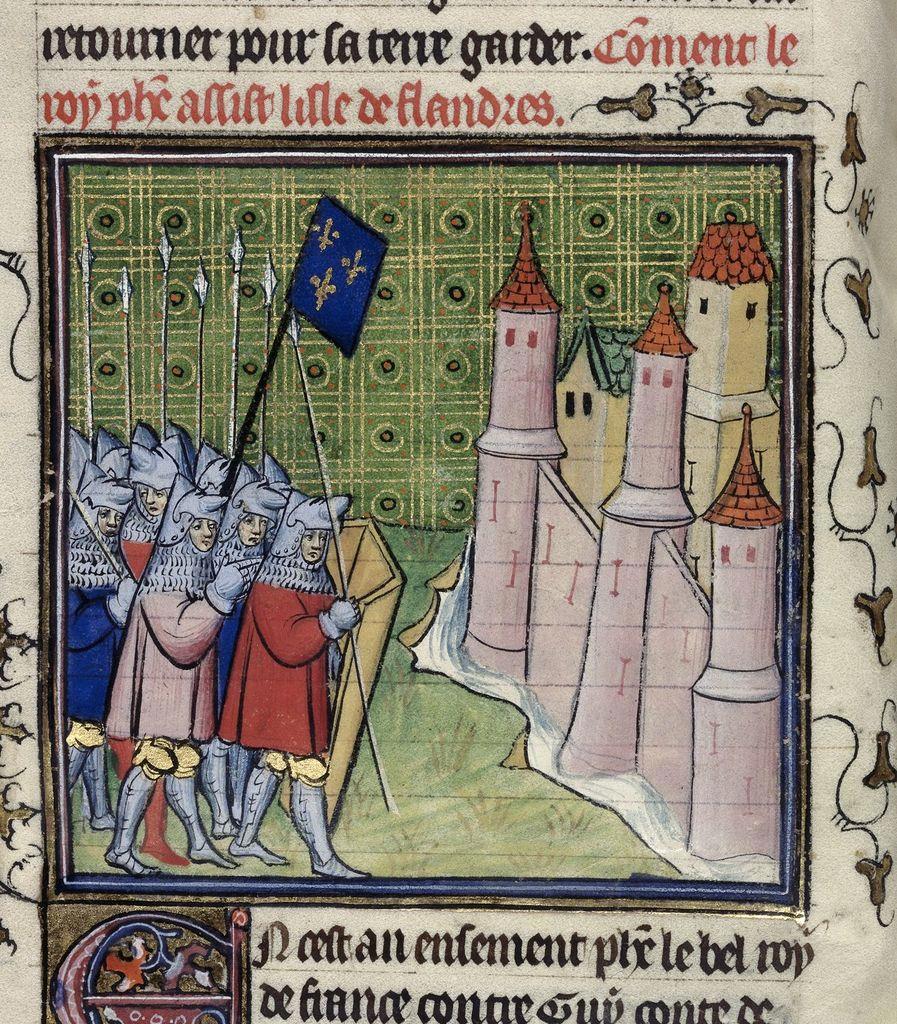 retourner pour sa terre garder. Cõment le
roy phẽ assist lisle de flandres.
En cest an ensement phẽ le bel roy
de france contre Guy conte de